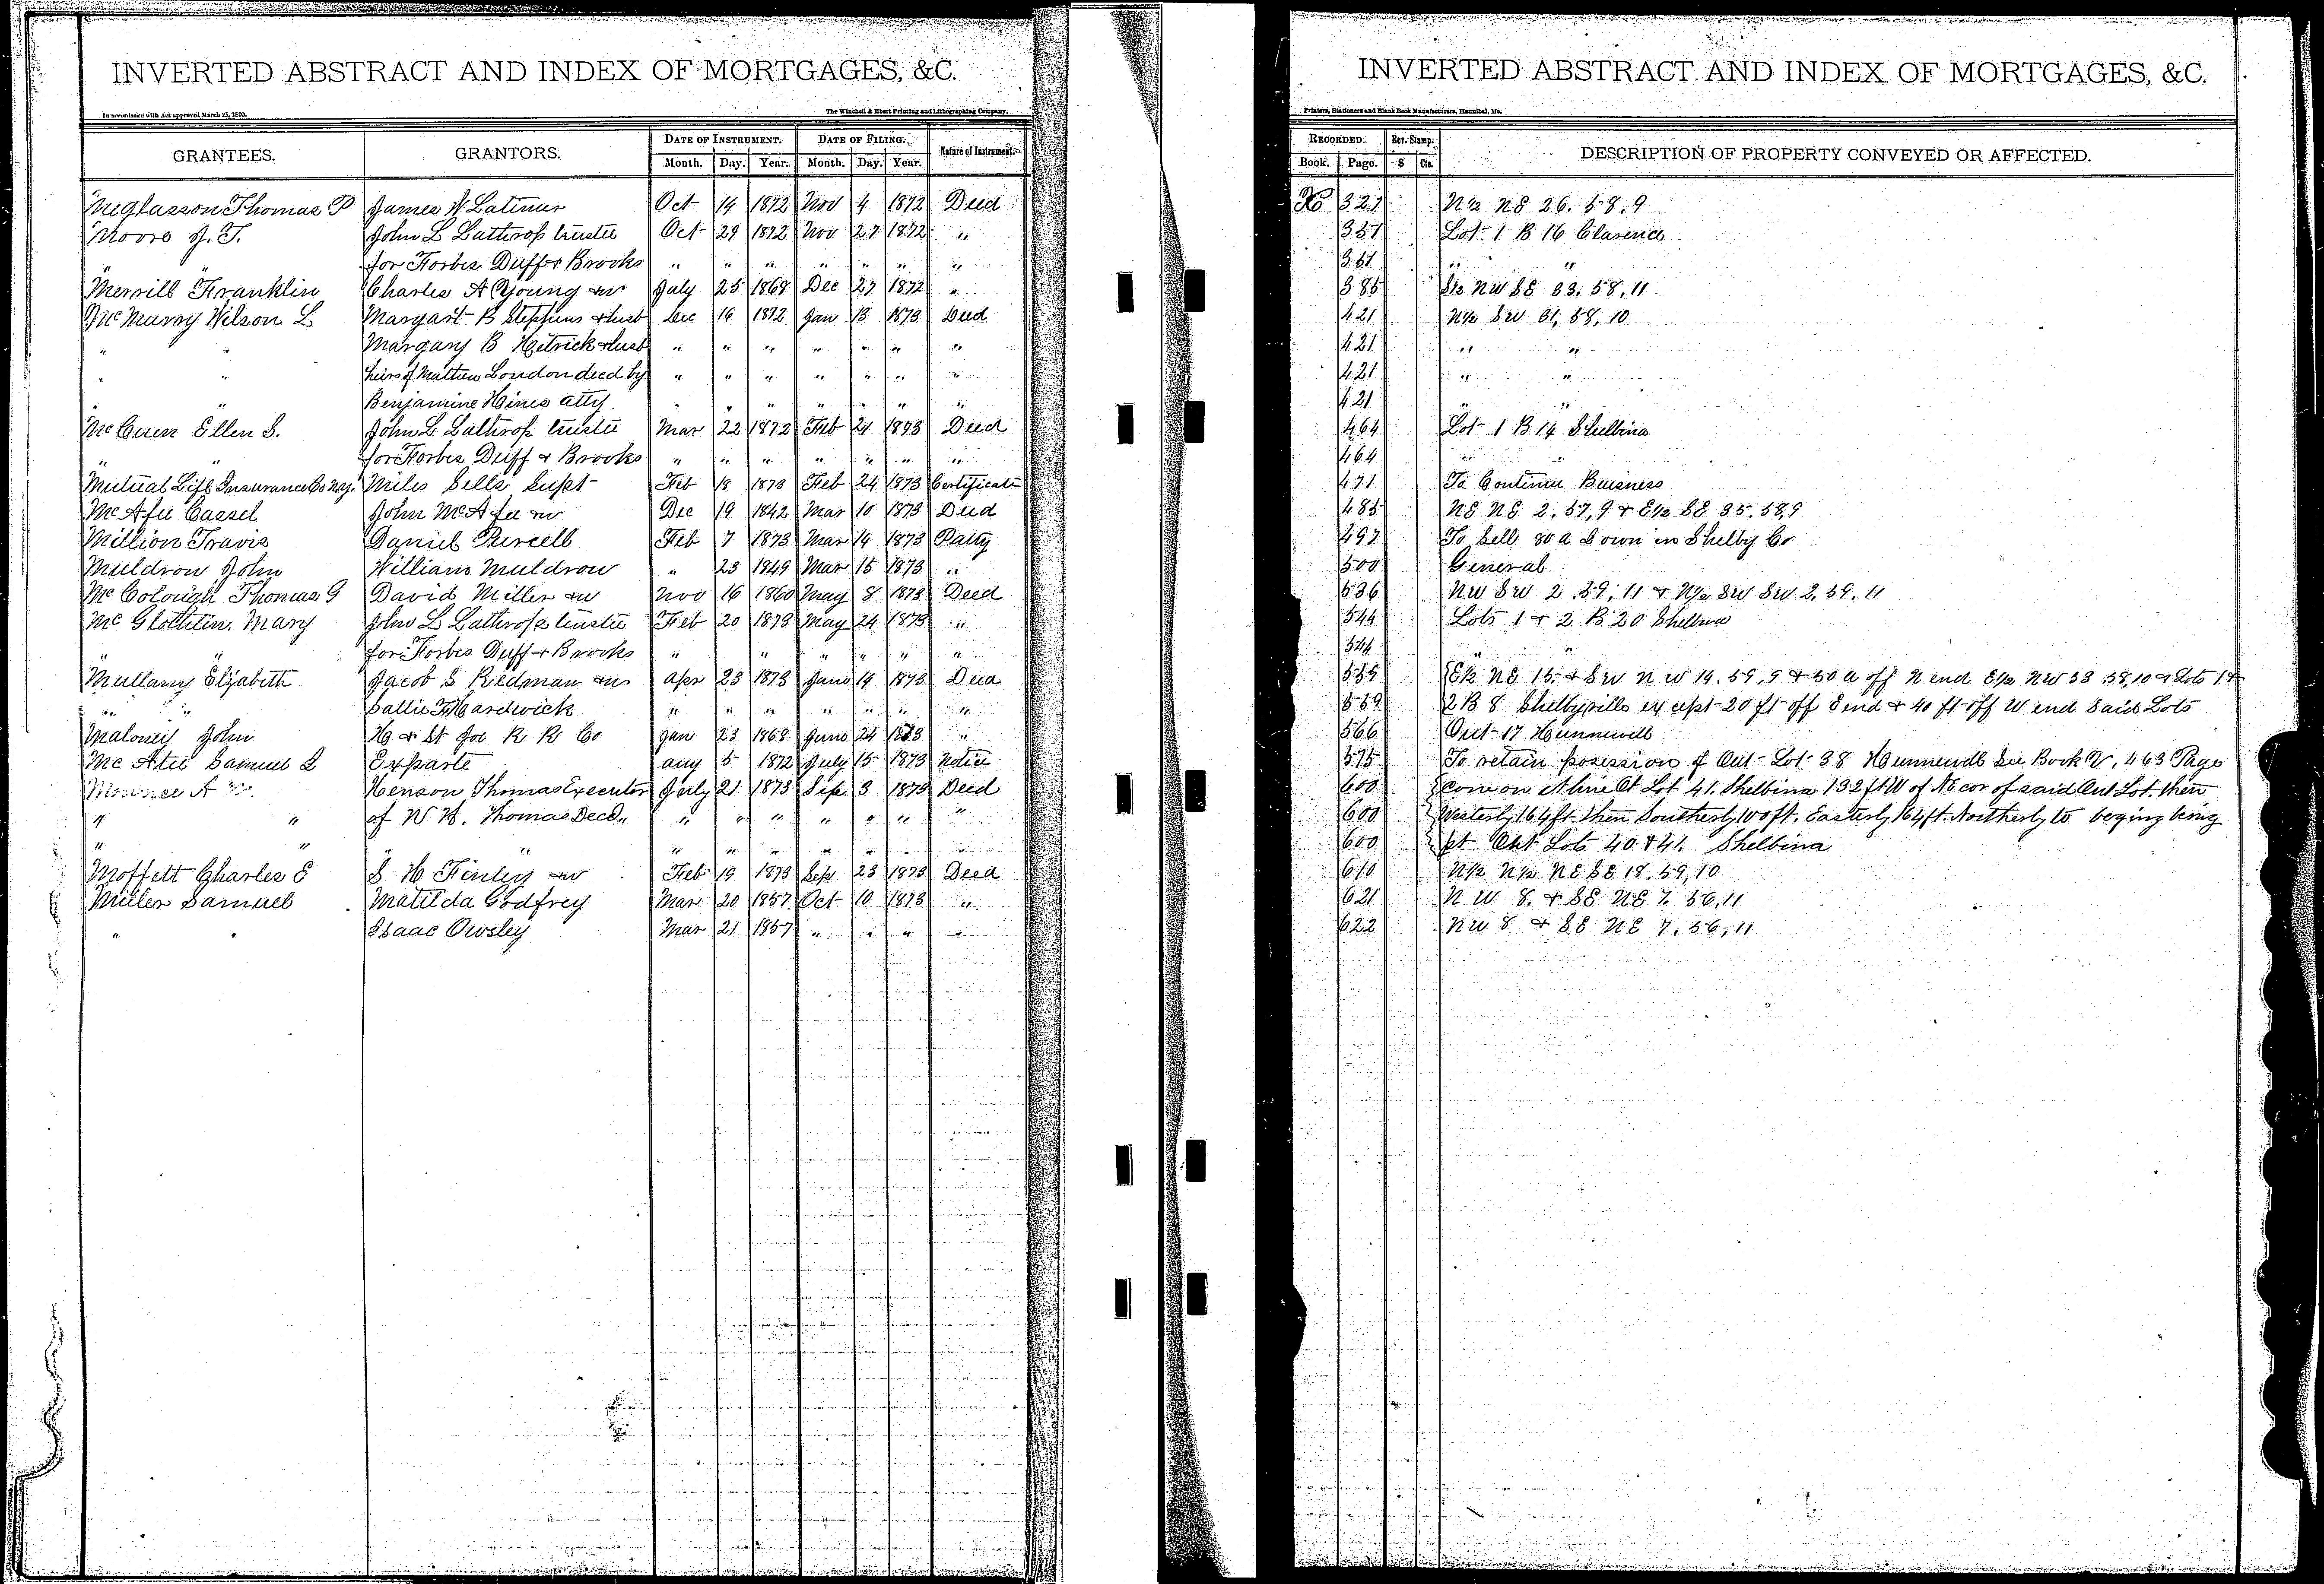 INVERTED ABSTRACT AND INDEX OF MORTGAGES, &C.
In accordance with Act approved March 25, 1870.
The Winchell & Ebert Printing and Lithographing Company,
GRANTEES. GRANTORS. DATE OF INSTRUMENT. DATE OF FILING. Nature of Instrument.
Month. Day. Year. Month. Day. Year.
McGlasson Thomas P James W Latimer Oct 14 1872 Nov 4 1872 Deed
Moore J. T. John L Lathrop trustee Oct 29 1872 Nov 27 1872 "
for Forbes Duff & Brooks " " " " " " "
Merrill Franklin Charles A Young & w July 25 1868 Dec 27 1872 "
McMurry Wilson L Margart B Stephens & husb Dec 16 1872 Jan 13 1873 Deed
" " Margary B Hetrick & husb " " " " " " "
" " heirs of Mathew London decd by " " " " " " "
" Benjamine Hines atty. " " " " " " "
Mc Cuen Ellen S. John L Lathrop trustee Mar 22 1872 Feb 21 1873 Deed
" for Forbes Duff & Brooks " " " " " " "
Mutual Life Insurance Co N.Y. Miles Sells Supt Feb 18 1873 Feb 24 1873 Certificate
McAfee Cassel John McAfee & w Dec 19 1842 Mar 10 1873 Deed
Million Travis Daniel Purcell Feb 7 1873 Mar 14 1873 Patty
Muldrow John William Muldrow " 23 1849 Mar 15 1873 "
Mc Colough Thomas G David Miller & w Nov 16 1860 May 8 1873 Deed
Mc Glothlin Mary John L Lathrop trustee Feb 20 1873 May 24 1873 "
" " for Forbes Duff & Brooks " " " " " "
Mullany Elizabeth Jacob S Redman & w Apr 23 1873 June 19 1873 Deed
" " Sallie F Hardwick " " " " " " "
Maloney John H & St Joe R R Co Jan 23 1868 June 24 1873 "
Mc Atee Samuel L Exparte Aug 5 1872 July 15 1873 Notice
A Henson Thomas Executor July 21 1873 Sep 3 1873 Deed
" " of W H. Thomas Decd. " " " " " " "
" " " " " " " " " "
Moffett Charles E S. H Finley & w Feb 19 1873 Sep 23 1873 Deed
Miller Samuel Matilda Godfrey Mar 20 1857 Oct 10 1873 "
" " Isaac Owsley Mar 21 1857 " " " "
INVERTED ABSTRACT AND INDEX OF MORTGAGES, &C.
Printers, Stationers and Blank Book Manufacturers, Hannibal, Mo.
RECORDED. Rev. Stamp. DESCRIPTION OF PROPERTY CONVEYED OR AFFECTED.
Book. Page. $ Cts.
327 N½ NE 26. 58. 9
337 Lot 1 B 16 Clarence
" "
385 S½ NW SE 33. 58, 11
421 N½ SW 31, 58, 10
421 " "
421 " "
421 " "
464 Lot 1 B 14 Shelbina
464 "
471 To Continue Buisness
485 NE NE 2. 57, 9 & E½ SE 35. 58, 9
497 To sell 80 a Down in Shelby Co
500 General
536 NW SW 2. 59, 11 & N½ SW SW 2. 59. 11
544 Lots 1 & 2 B 20 Shelbina
544 "
559 E½ NE 15. & SW NW 14. 59, 9 & 50 a off N end E½ NW 33 58, 10 & Lots 1 &
559 2 B 8 Shelbyville except 20 ft off E end & 40 ft off W end Said Lots
566 Out 17 Hunnewell
575 To retain posession of Out Lot 38 Hunnewell See Book V, 463 Page
600 Com on N line Ot Lot 41. Shelbina 132 ft W of NE cor of said Out Lot. then
600 Westerly 164 ft. then Southerly 100 ft. Easterly 164 ft. Northerly to beging being
600 pt Out Lots 40 & 41. Shelbina
610 N½ N½ NE SE 18. 59, 10
621 N W 8. & SE NE 7. 56, 11
622 NW 8 & SE NE 7. 56, 11